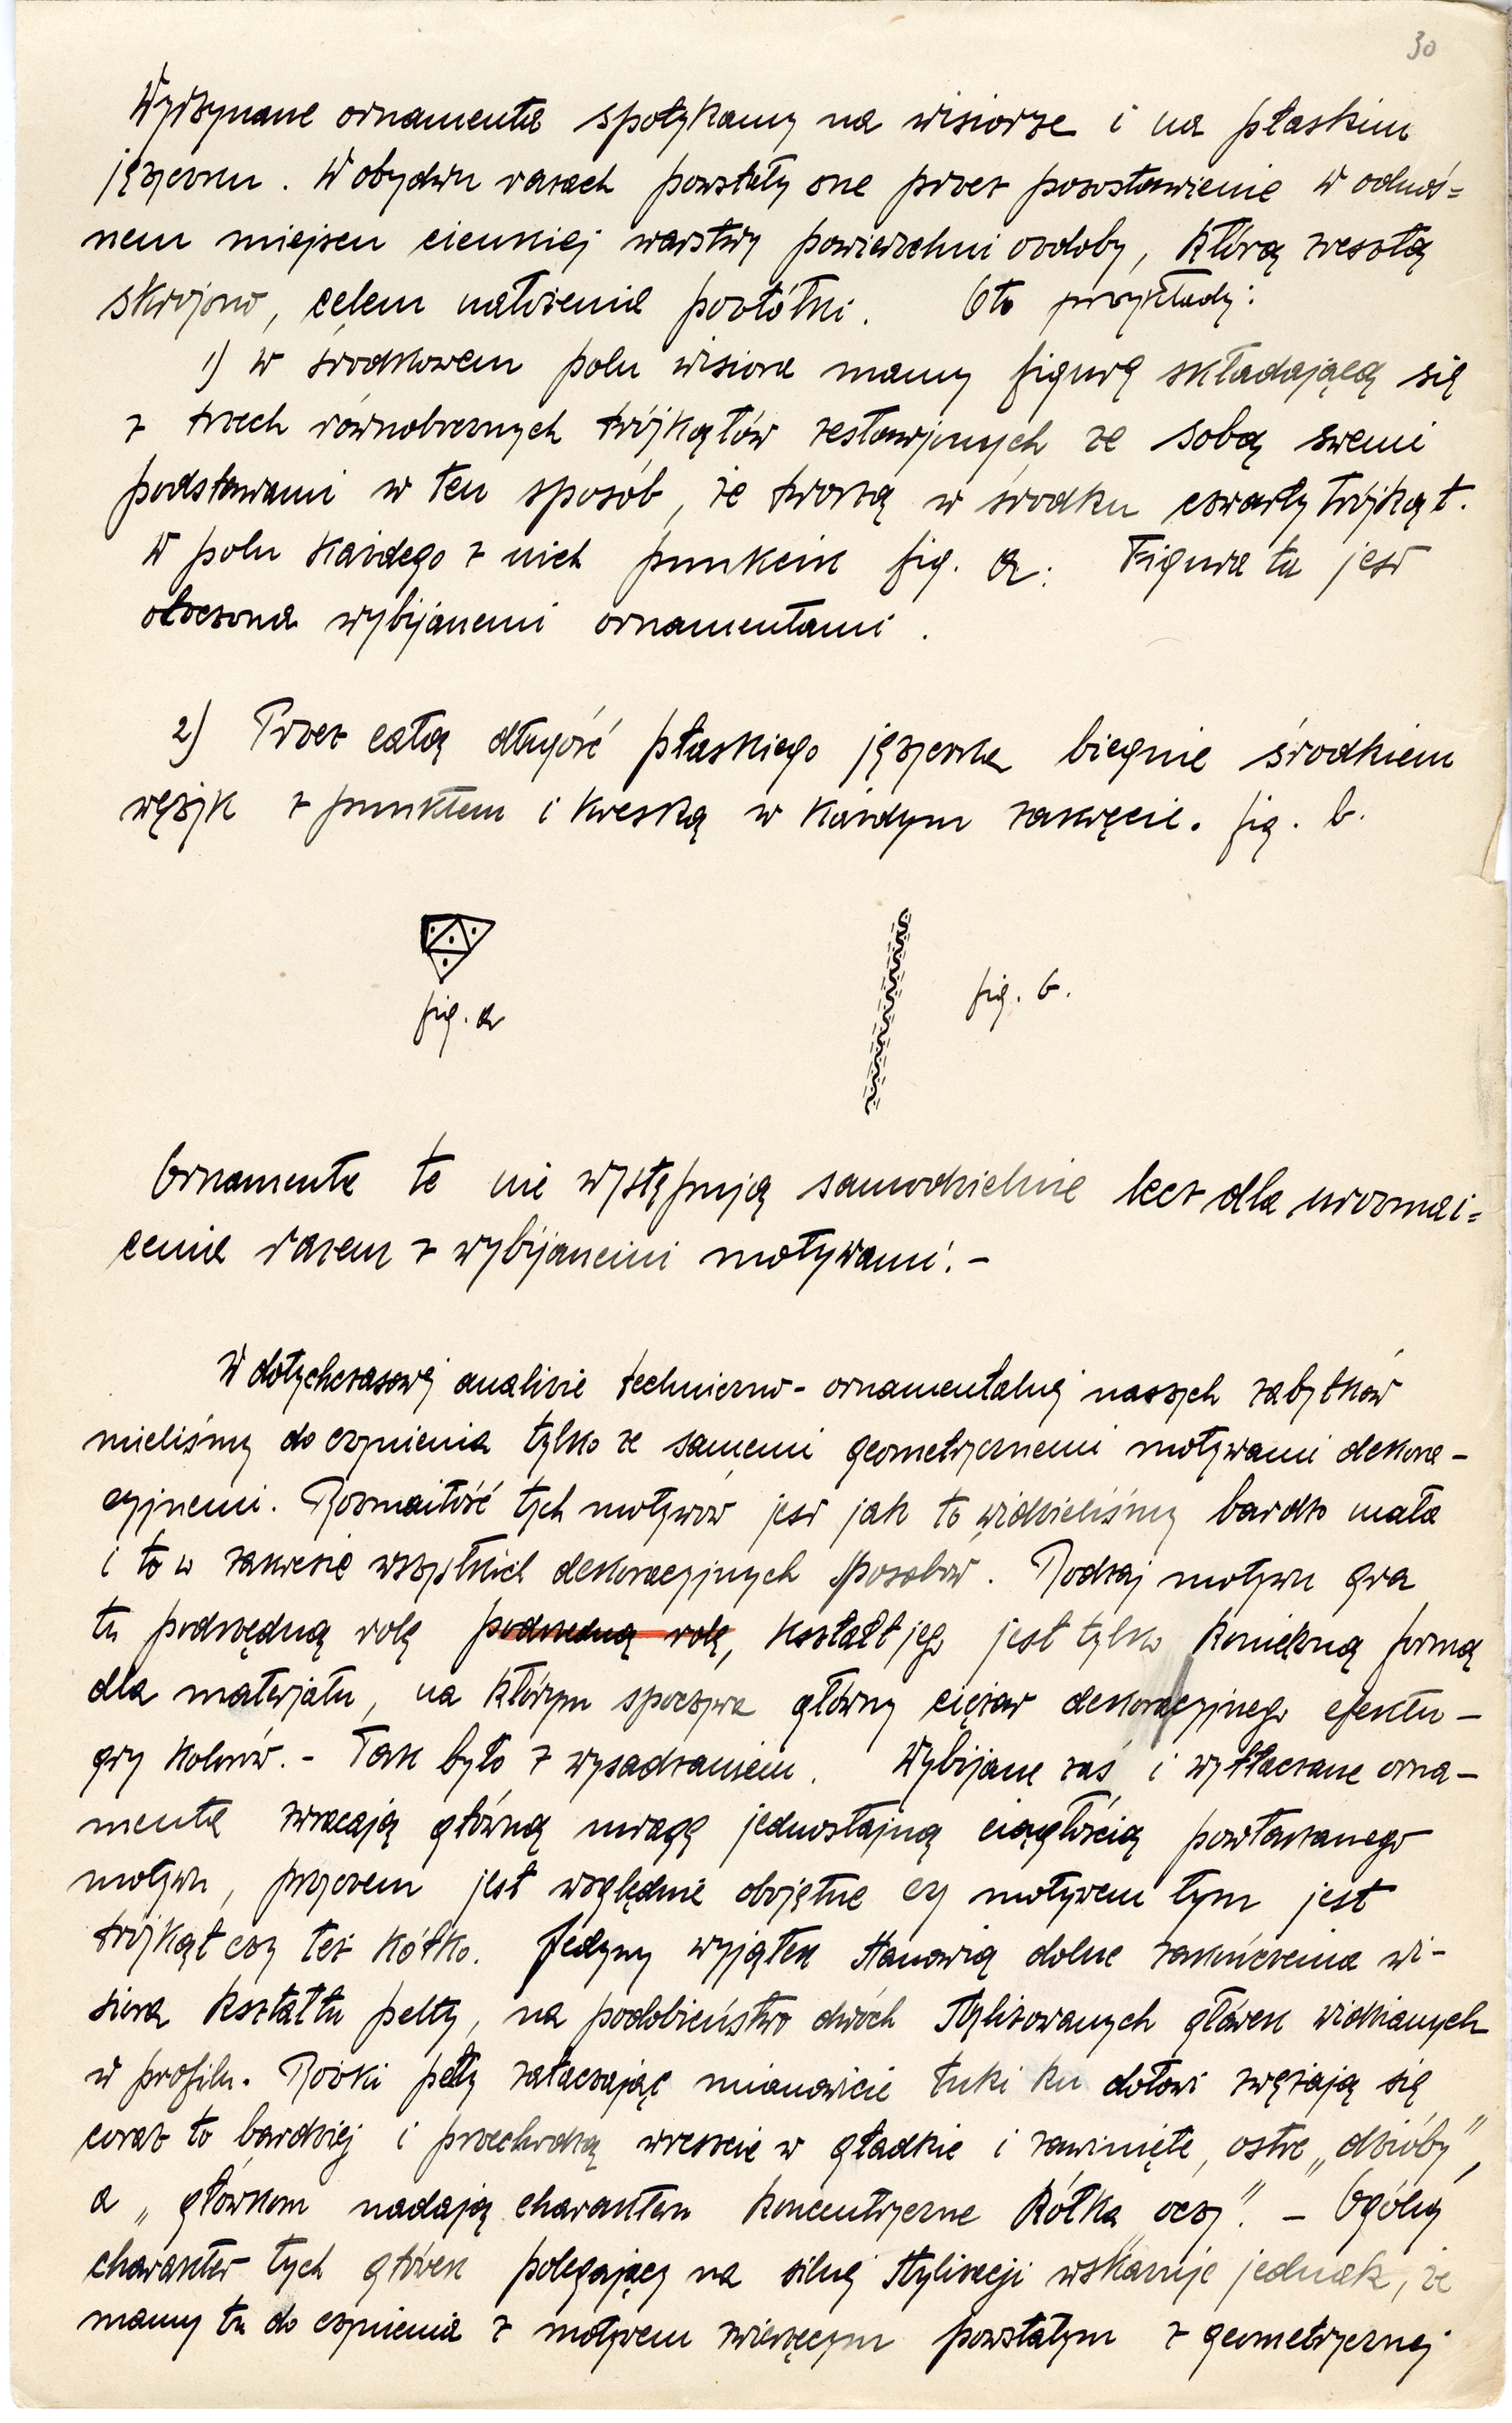 30
Wyrzynane ornamenta spotykamy na wisiorze i na płaskim
języczku. W obydwu razach powstały one przez pozostawienie w odnoś=
nem miejscu cienkiej warstwy powierzchni ozdoby, którą zresztą
skrojono, celem nałożenia pozłótki. Oto przykłady:
1) w środkowem polu wisiora mamy figurę składającą się
z trzech równobocznych trójkątów zestawionych ze sobą swemi
podstawami w ten sposób, że tworzą w środku czwarty trójkąt.
W polu każdego z nich punkcik fig. a: Figura ta jest
otoczona wybijanemi ornamentami.
2) Przez całą długość płaskiego języczka biegnie środkiem
wężyk z punktem i kreską w każdym zakręcie. fig. b.
fig. a
fig. b.
Ornamenta te nie występują samodzielnie lecz dla urozmai=
cenia razem z wybijanemi motywami. –
W dotychczasowej analizie techniczno - ornamentalnej naszych zabytków
mieliśmy do czynienia tylko ze samemi geometrycznemi motywami dekora-
cyjnemi. Rozmaitość tych motywów jest jak to widzieliśmy bardzo mała
i to w zakresie wszystkich dekoracyjnych sposobów. Rodzaj motywu gra
tu podrzędną rolę podrzedną rolę, kształt jego jest tylko konieczną formą
dla materjału, na którym spoczywa główny ciężar dekoracyjnego efektu –
gry kolorów. – Tak było z wysadzaniem. Wybijane zaś i wytłaczane orna-
menta zwracają główną uwagę jednostajną ciągłością powtarzanego
motywu, przyczem jest względnie obojętne czy motywem tym jest
trójkąt czy też kółko. Jedyny wyjątek stanowią dolne zakończenia wi-
siora kształtu pelty, na podobieństwo dwóch stylizowanych główek widzianych
w profilu. Rożki pelty zataczając mianowicie łuki ku dołowi zwężają się
coraz to bardziej i przechodzą wreszcie w gładkie i zawinięte, ostre „dzióby”,
a „główkom nadają charakteru koncentryczne kółka „oczy”. – Ogólny
charakter tych główek polegający na silnej stylizacji wskazuje jednak, że
mamy tu do czynienia z motywem zwierzęcym powstałym z geometrycznej